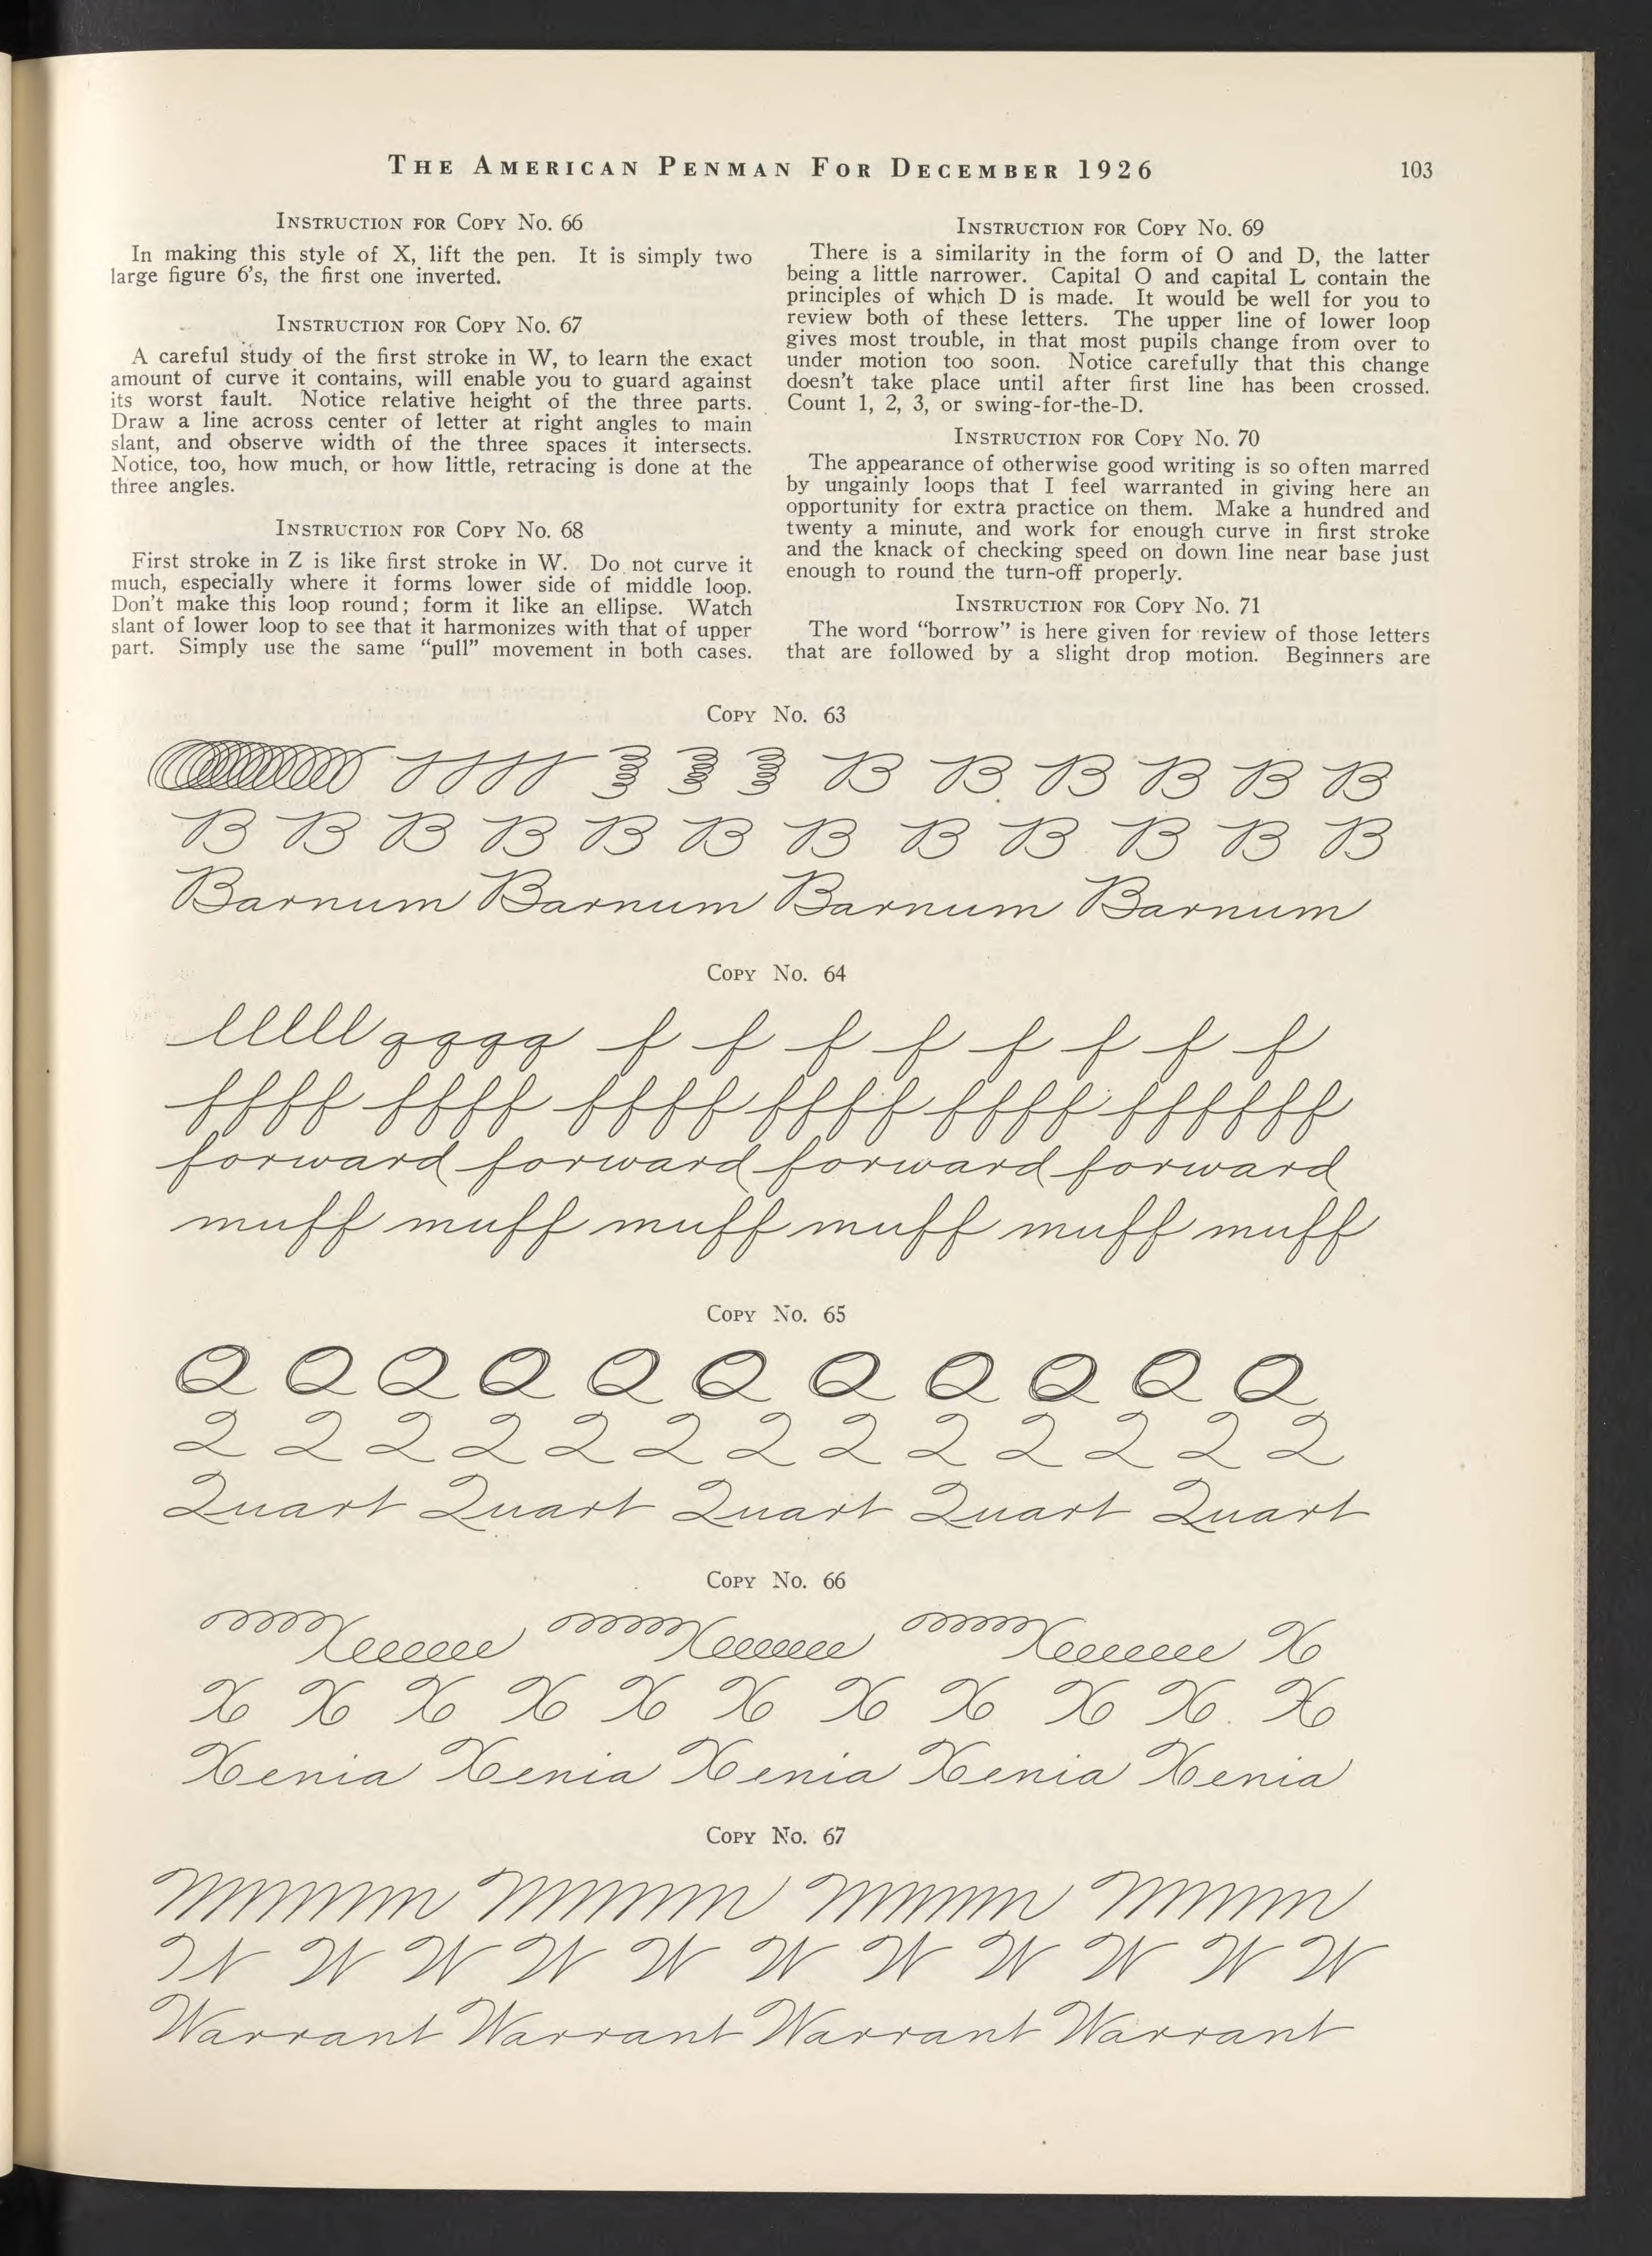 THE AMERICAN PENMAN FOR DECEMBER 1926
103
INSTRUCTION FOR COPY NO. 66
In making this style of X, lift the pen. It is simply two
large figure 6's, the first one inverted.
INSTRUCTION FOR COPY NO. 67
A careful study of the first stroke in W, to learn the exact
amount of curve it contains, will enable you to guard against
its worst fault. Notice relative height of the three parts.
Draw a line across center of letter at right angles to main
slant, and observe width of the three spaces it intersects.
Notice, too, how much, or how little, retracing is done at the
three angles.
INSTRUCTION FOR COPY NO. 68
First stroke in Z is like first stroke in W. Do not curve it
much, especially where it forms lower side of middle loop.
Don't make this loop round; form it like an ellipse. Watch
slant of lower loop to see that it harmonizes with that of upper
part. Simply use the same "pull" movement in both cases.
INSTRUCTION FOR COPY NO. 69
There is a similarity in the form of O and D, the latter
being a little narrower. Capital O and capital L contain the
principles of which D is made. It would be well for you to
review both of these letters. The upper line of lower loop
gives most trouble, in that most pupils change from over to
under motion too soon. Notice carefully that this change
doesn't take place until after first line has been crossed.
Count 1, 2, 3, or swing-for-the-D.
INSTRUCTION FOR COPY NO. 70
The appearance of otherwise good writing is so often marred
by ungainly loops that I feel warranted in giving here an
opportunity for extra practice on them. Make a hundred and
twenty a minute, and work for enough curve in first stroke
and the knack of checking speed on down line near base just
enough to round the turn-off properly.
INSTRUCTION FOR COPY NO. 71
The word "borrow" is here given for review of those letters
that are followed by a slight drop motion. Beginners are
COPY NO. 63
B B B B B B
B B B B B B B B B B B B
Barnum Barnum Barnum Barnum
COPY NO. 64
lllll qqqq f f f f f f f f
ffff ffff ffff ffff ffff ffffff
forward forward forward forward
muff muff muff muff muff muff
COPY NO. 65
Q Q Q Q Q Q Q Q Q Q Q
Q Q Q Q Q Q Q Q Q Q Q Q Q
Quart Quart Quart Quart Quart
COPY NO. 66
X
X X X X X X X X X X X
Xenia Xenia Xenia Xenia Xenia
COPY NO. 67
W W W W W W W W W W
Warrant Warrant Warrant Warrant